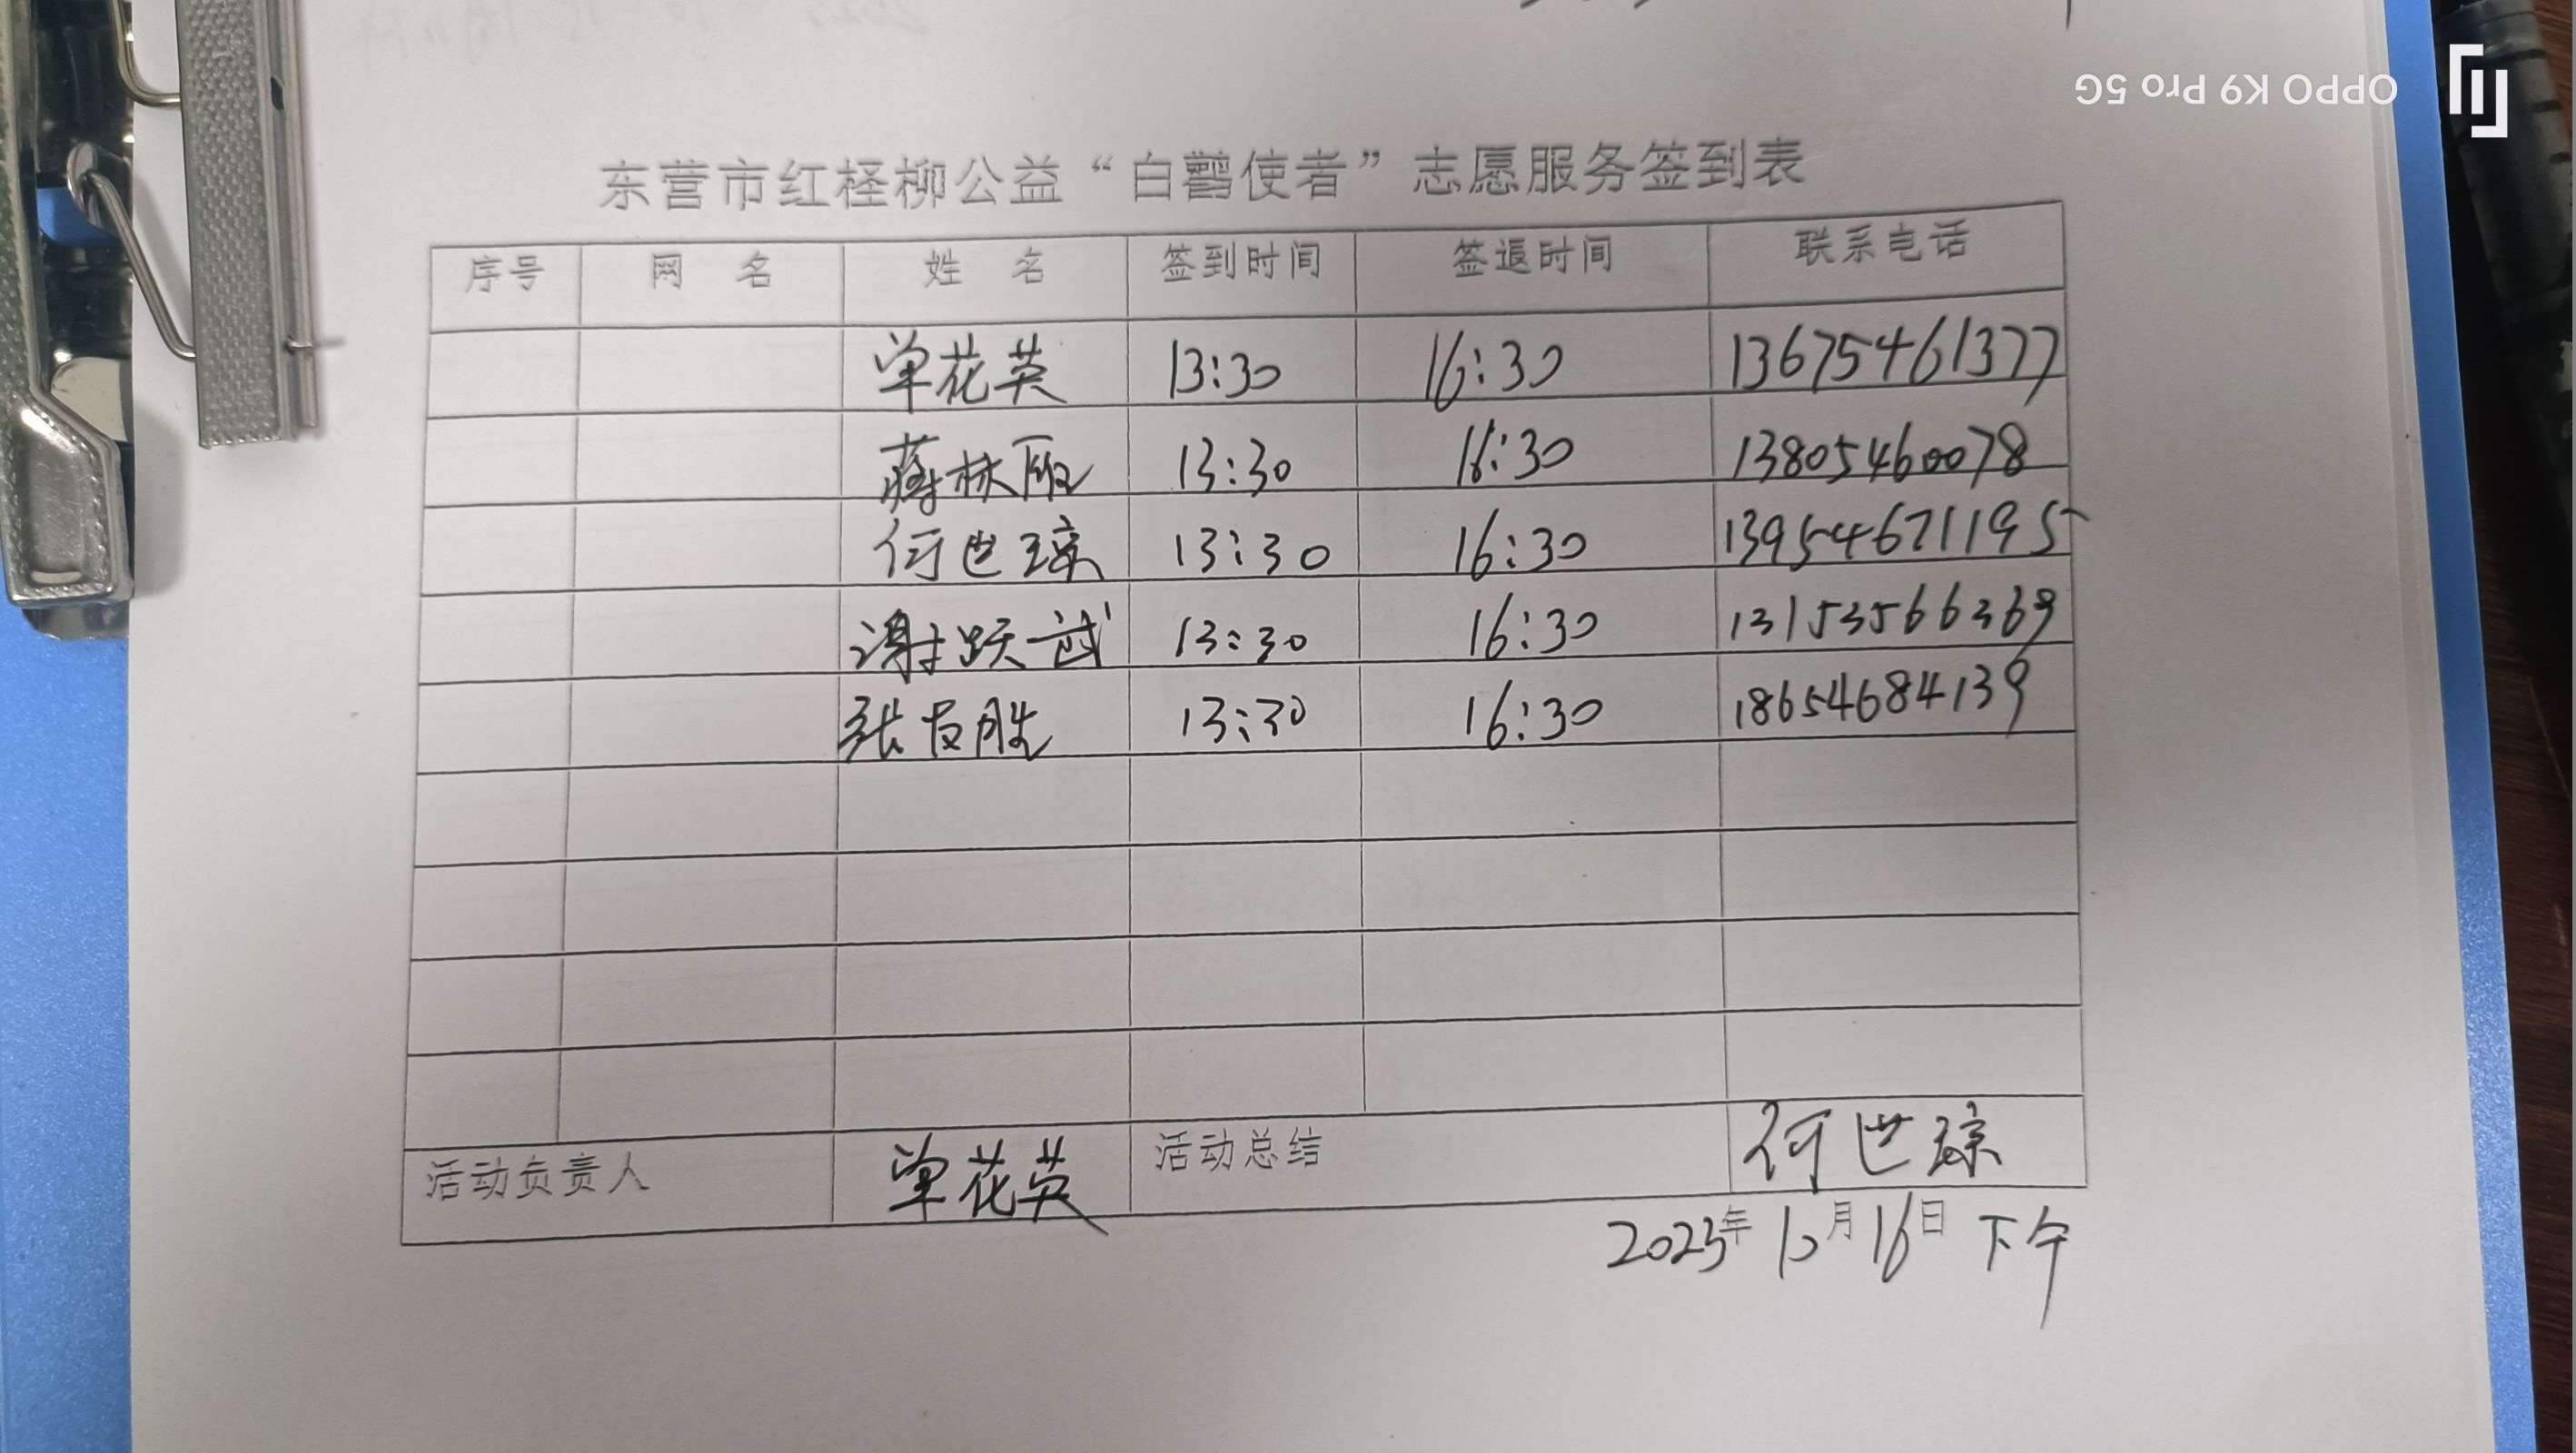 OPPO K9 Pro 5G
东营市红柽柳公益“白鹳使者”志愿服务签到表
序号 网 名 姓 名 签到时间 签退时间 联系电话
单花英 13:30 16:30 13675461377
蒋林 13:30 16:30 13805460078
何世琼 13:30 16:30 13954671195
谢跃武 13:30 16:30 13153566369
张友胜 13:30 16:30 18654684139
活动负责人 单花英 活动总结 何世琼
2023年 月16日 下午